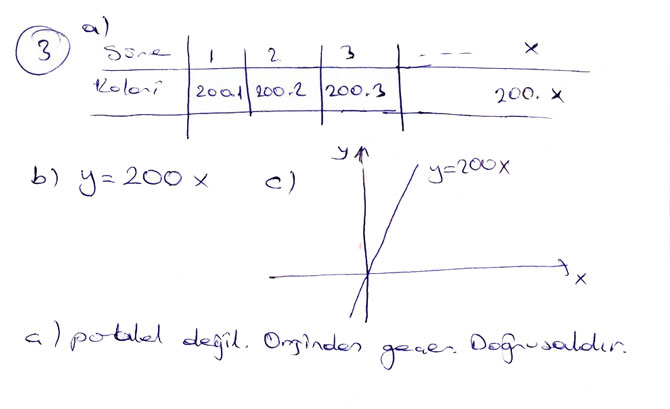 3 a)
Süre 1 2 3 . - -- x
Kalori 200.1 200.2 200.3 200. x
b) y = 200 x c) y y=200x
x
c) paralel değil. Orjinden geçer. Doğrusaldır.